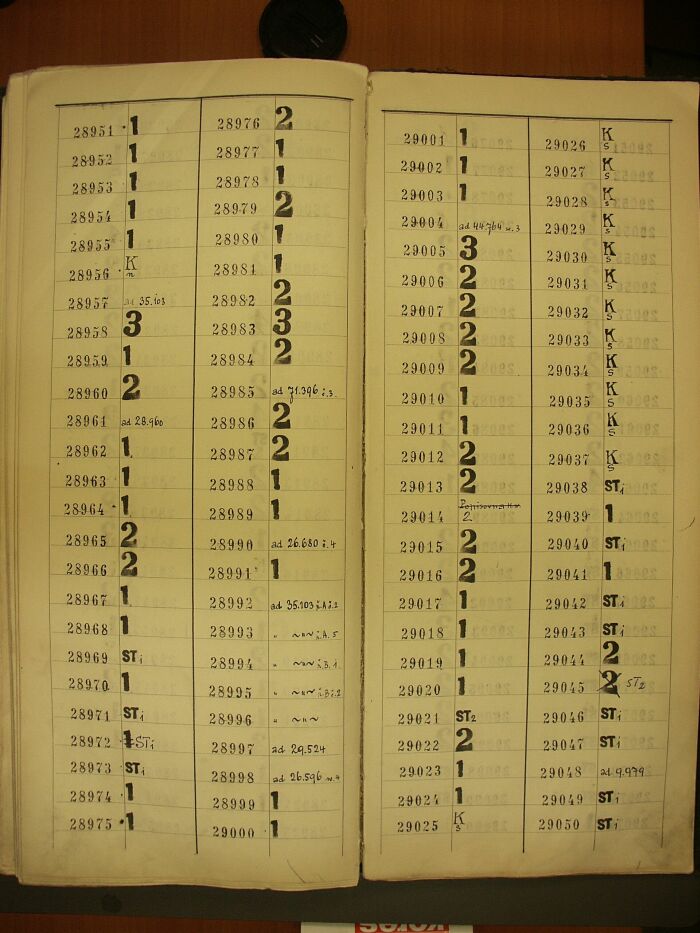 28951 1
28952 1
28953 1
28954 1
28955 1
28956 K n
28957 ad 35.103
28958 3
28959 1
28960 2
28961 ad 28.960
28962 1
28963 1
28964 1
28965 2
28966 2
28967 1
28968 1
28969 ST1
28970 1
28971 ST1
28972 1 ST1
28973 ST1
28974 1
28975 1
28976 2
28977 1
28978 1
28979 2
28980 1
28981 1
28982 2
28983 3
28984 2
28985 ad 71.396 i.3.
28986 2
28987 2
28988 1
28989 1
28990 ad 26.680 i.4
28991 1
28992 ad 35.103 i.A i.2
28993 " ~"~ i.A. 5
28994 " ~"~ i.B. 1
28995 " ~"~ i.B i.2
28996 " ~"~
28997 ad 29.524
28998 ad 26.596
28999 1
29000 1
29001 1
29002 1
29003 1
29004 ad 44.764 u.3
29005 3
29006 2
29007 2
29008 2
29009 2
29010 1
29011 1
29012 2
29013 2
29014 2
29015 2
29016 2
29017 1
29018 1
29019 1
29020 1
29021 ST2
29022 2
29023 1
29024 1
29025 K s
29026 K s
29027 K s
29028 K s
29029 K s
29030 K s
29031 K s
29032 K s
29033 K s
29034 K s
29035 K s
29036 K s
29037 K s
29038 ST1
29039 1
29040 ST1
29041 1
29042 ST1
29043 ST1
29044 2
29045 2 ST2
29046 ST1
29047 ST1
29048 ad 9.979
29049 ST1
29050 ST1